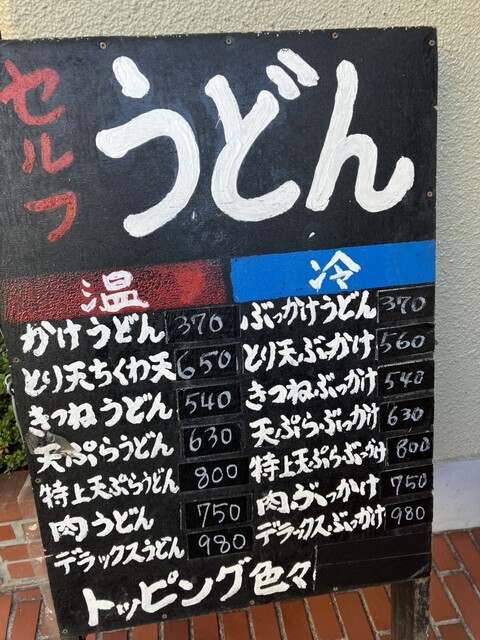 セルフ
うどん
温
かけうどん 370
とり天ちくわ天 650
きつねうどん 540
天ぷらうどん 630
特上天ぷらうどん 800
肉うどん 750
デラックスうどん 980
冷
ぶっかけうどん 370
とり天ぶっかけ 560
きつねぶっかけ 540
天ぷらぶっかけ 630
特上天ぷらぶっかけ 800
肉ぶっかけ 750
デラックスぶっかけ 980
トッピング色々